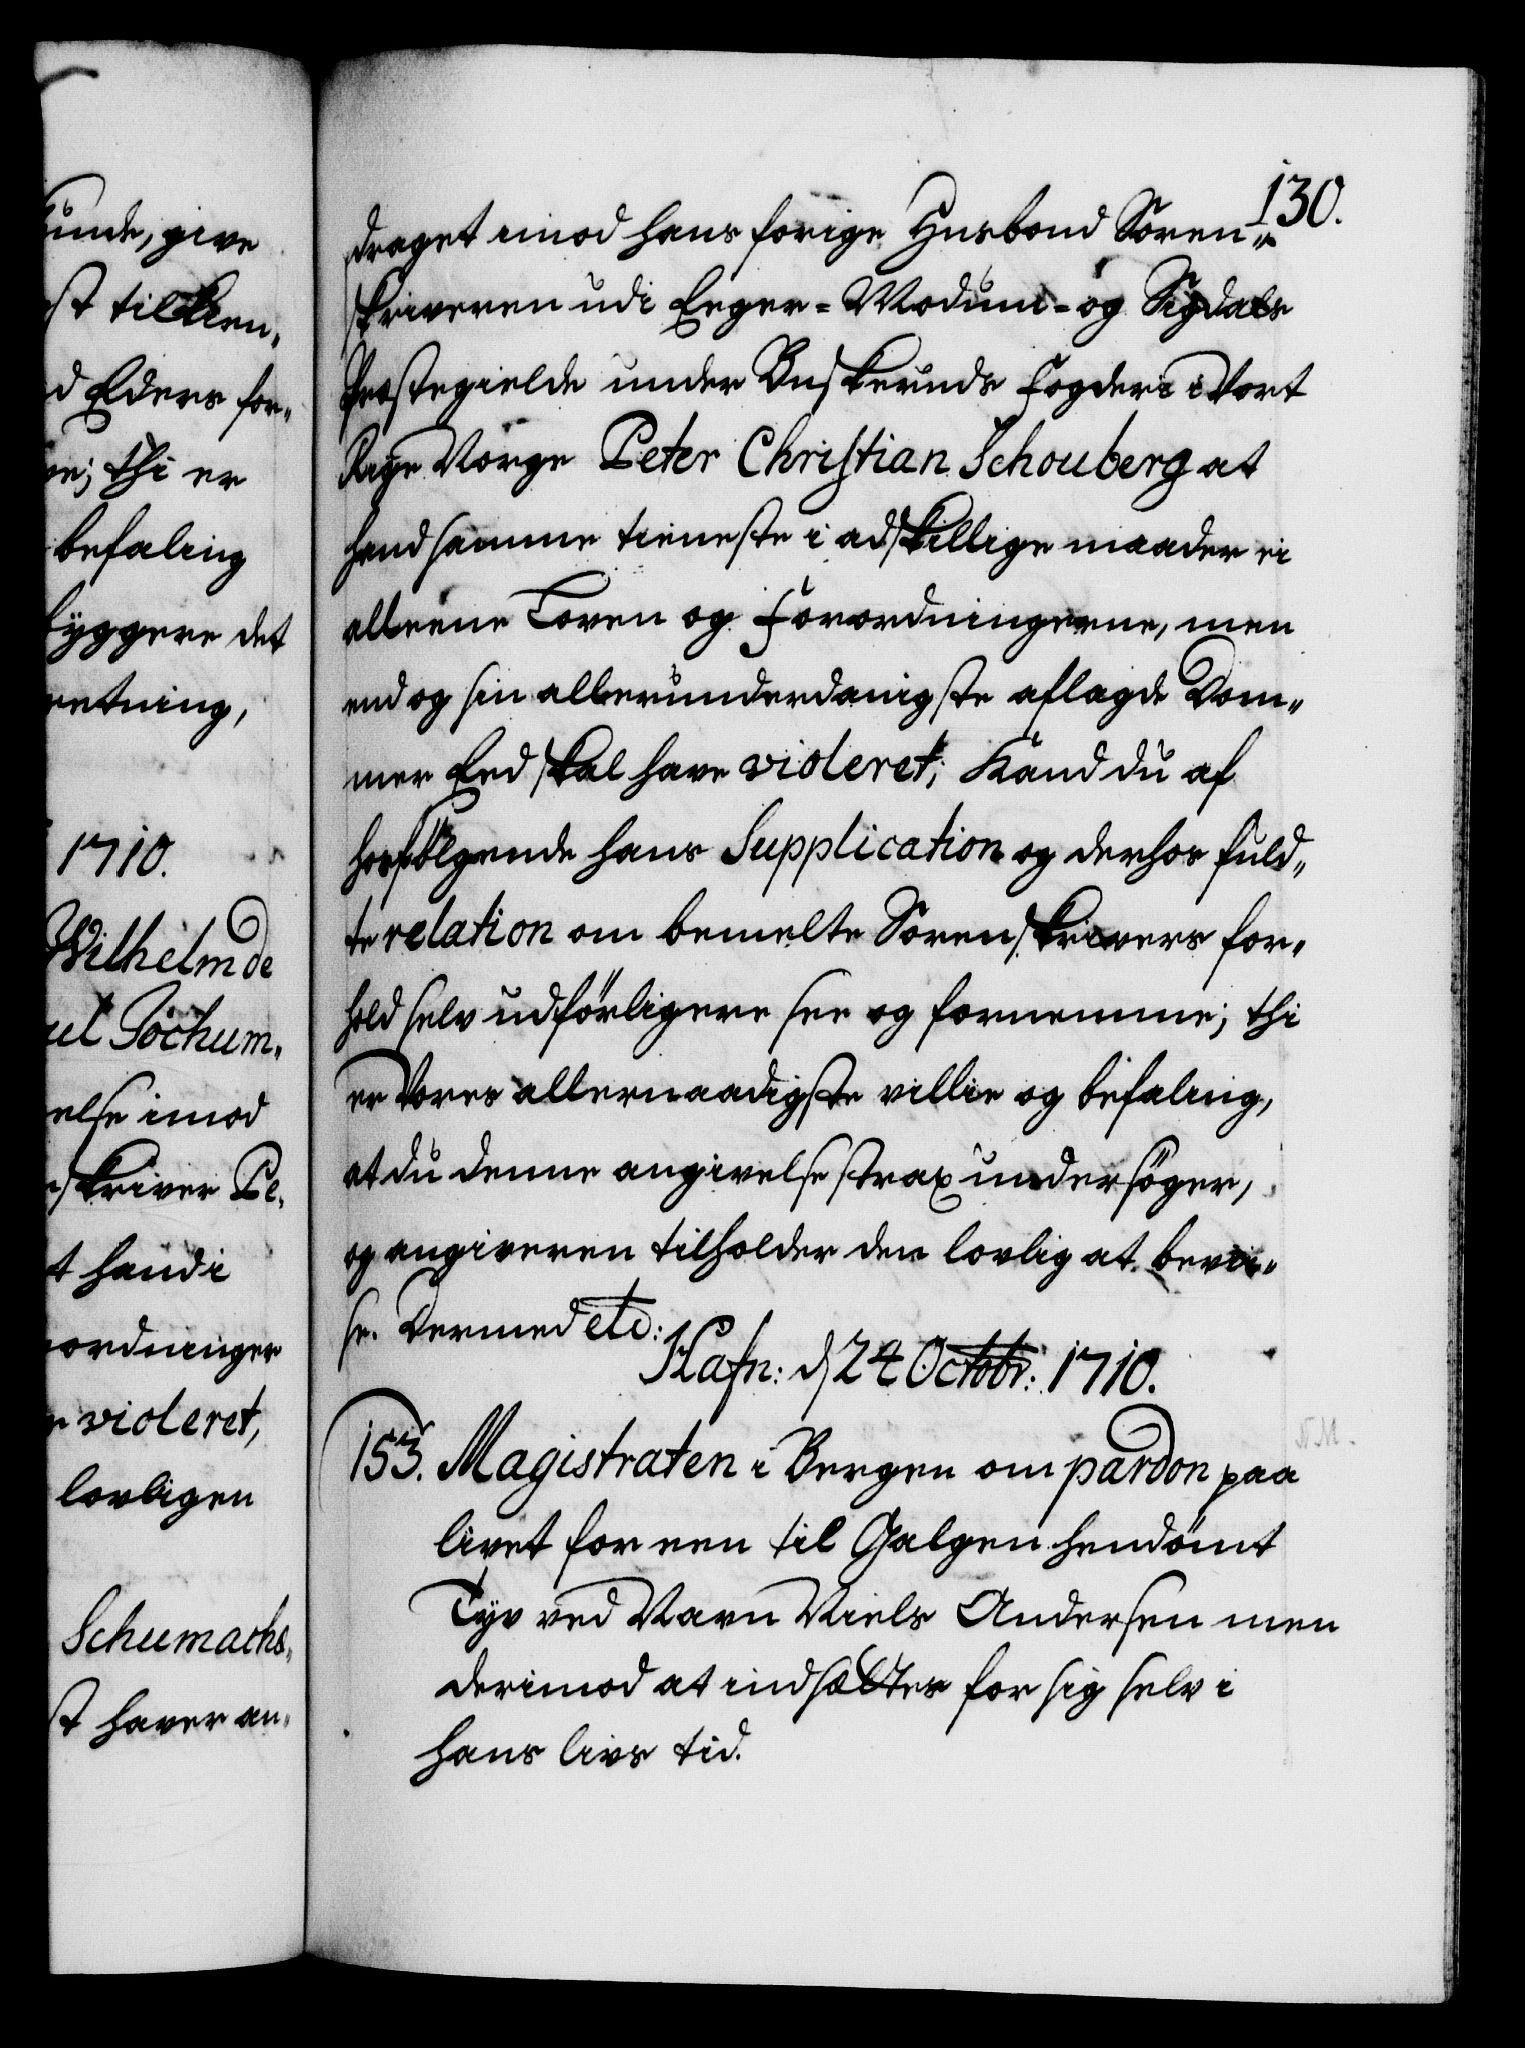 unde, give
st tilkien„
d Elders for„
ve; thi er
befaling
byggere det
retning,
1710.
Wilhelm de
uel Jochum„
else imod
skriver Pe„
t hand i
ordninger
violeret,
lovligen
Schumachs„
st haver an„
130.
draget imod hans forige Husbond Soren„
skriveren udi Eeger= Modum= og Sigdals
Præstegielde under Buskeruds Fogderi i Vort
Rige Norge Peter Christian Schouberg at
hand samme tieneste i adskillige maader ei
alleene Loven og Forordningerne, men
end og sin allerunderdanigste aflagde Dom„
mer Eed skal have violeret; Kand du af
hosfölgende hans Supplication og derhos fuld„
te relation om bemelte Sorenskrivers for„
hold selv udförligere see og fornemme; thi
er Vores allernaadigste villie og befaling,
at du denne angivelse strax undersöger,
og angiveren tilholder den lovlig at bevii„
se. Dermed etc:
Hafn: d 24 Octobr: 1710.
153. Magistraten i Bergen om pardon paa
livet for een til Galgen hendömt
Tyv ved Navn Niels Andersen men
derimod at indsættes for sig selv i
hans livs tid.
N.M.